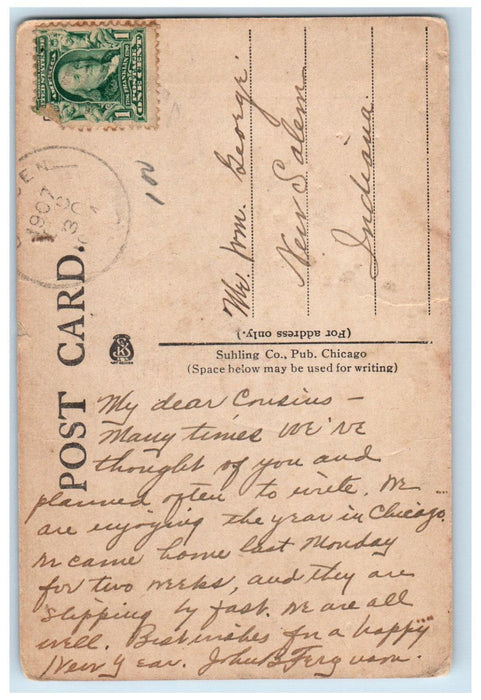 POST CARD.
1907
Mr. Wm. George.
New Salem
Indiana.
(For address only.)
Suhling Co., Pub. Chicago
(Space below may be used for writing)
My dear Cousins –
Many times we've
thought of you and
planned often to write. We
are enjoying the year in Chicago.
We came home last Monday
for two weeks, and they are
slipping by fast. We are all
well. Best wishes for a happy
New Year. John B Ferguson.